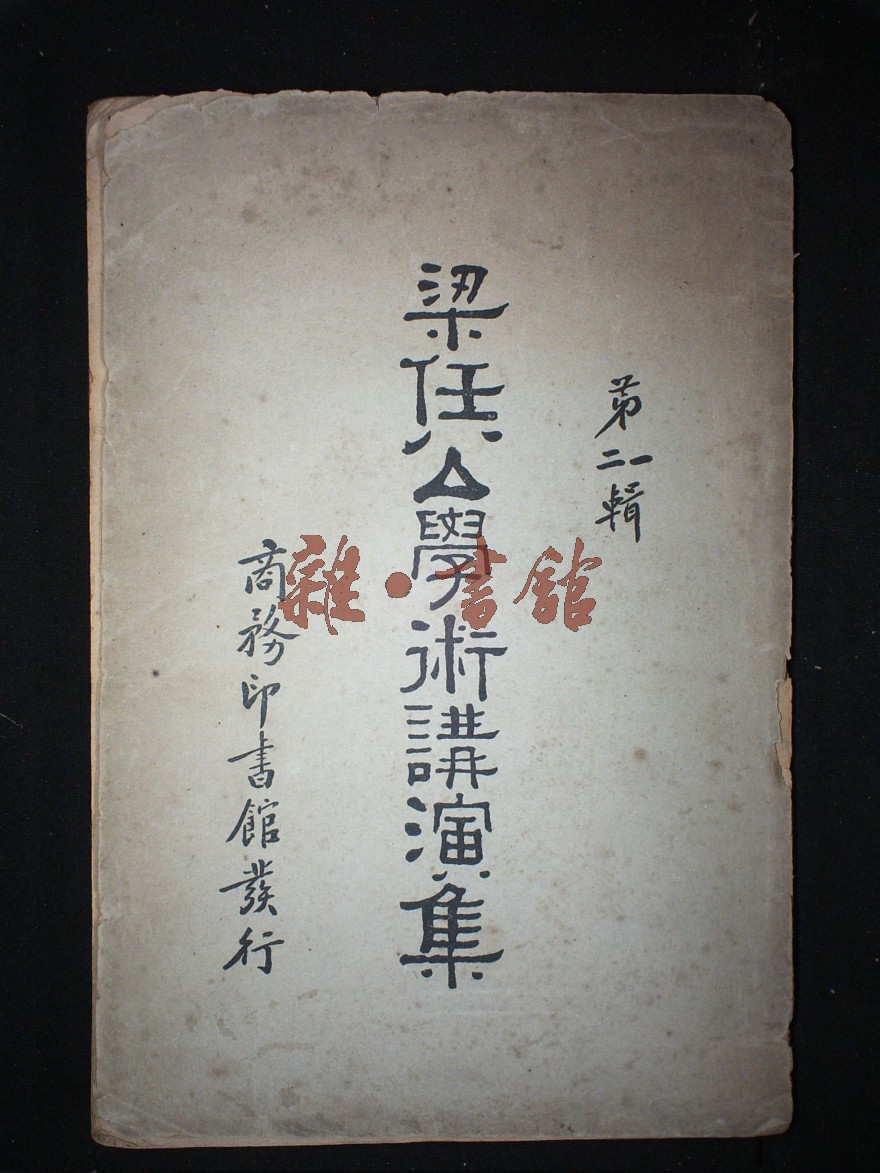 第三輯
梁任公學術講演集
商務印書館發行
雜·書館